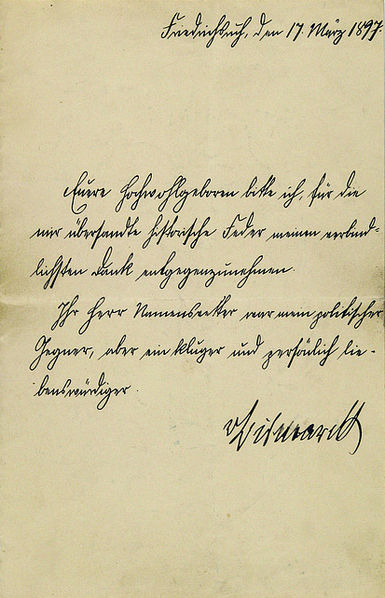 Friedrichsruh, den 17. März 1897.
Euere Hochwohlgeboren bitte ich, für die
mir übersandte historische Feder meinen verbind-
lichsten Dank entgegenzunehmen.
Ihr Herr Namensvetter war mein politischer
Gegner, aber ein kluger und persönlich lie-
benswürdiger.
vBismarck